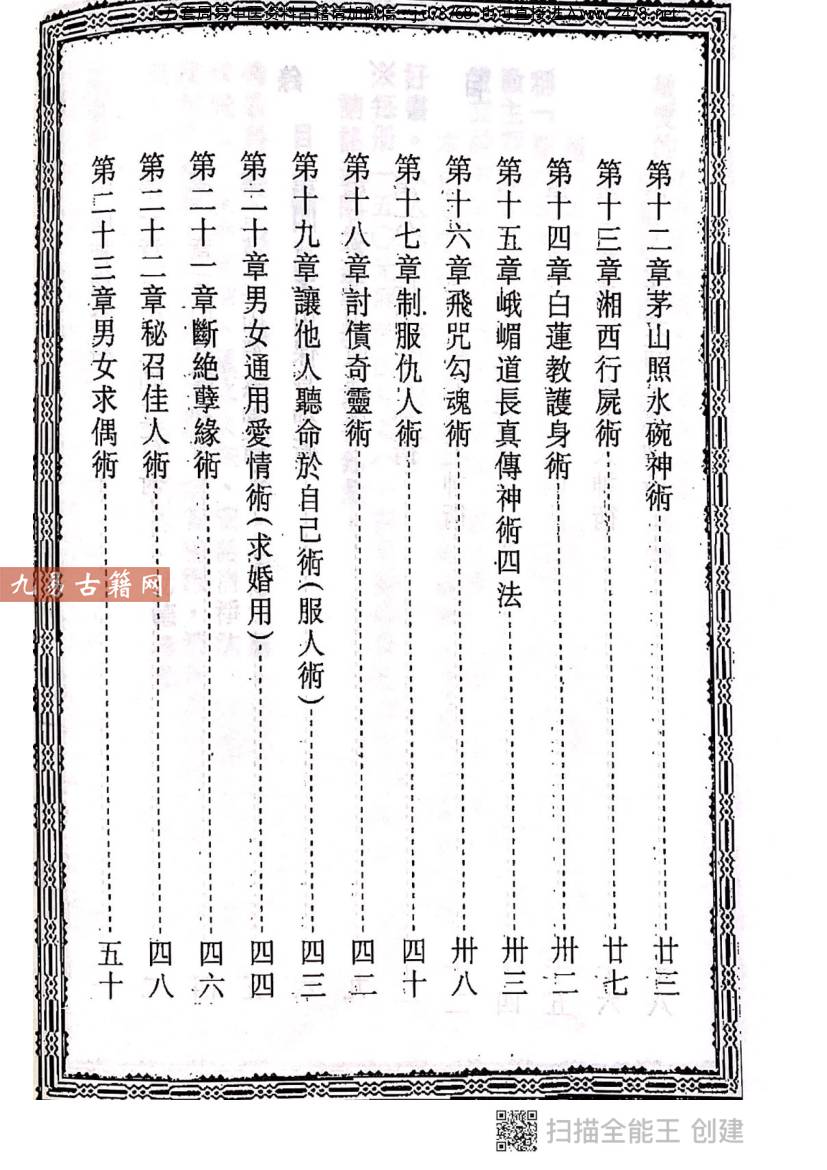 第十二章茅山照水碗神術 廿三
第十三章湘西行屍術 廿七
第十四章白蓮教護身術 卅二
第十五章峨嵋道長真傳神術四法 卅三
第十六章飛咒勾魂術 卅八
第十七章制服仇人術 四十
第十八章討債奇靈術 四二
第十九章讓他人聽命於自己術(服人術) 四三
第二十章男女通用愛情術(求婚用) 四四
第二十一章斷絶孽緣術 四六
第二十二章秘召佳人術 四八
第二十三章男女求偶術 五十
九易古籍网
扫描全能王 创建